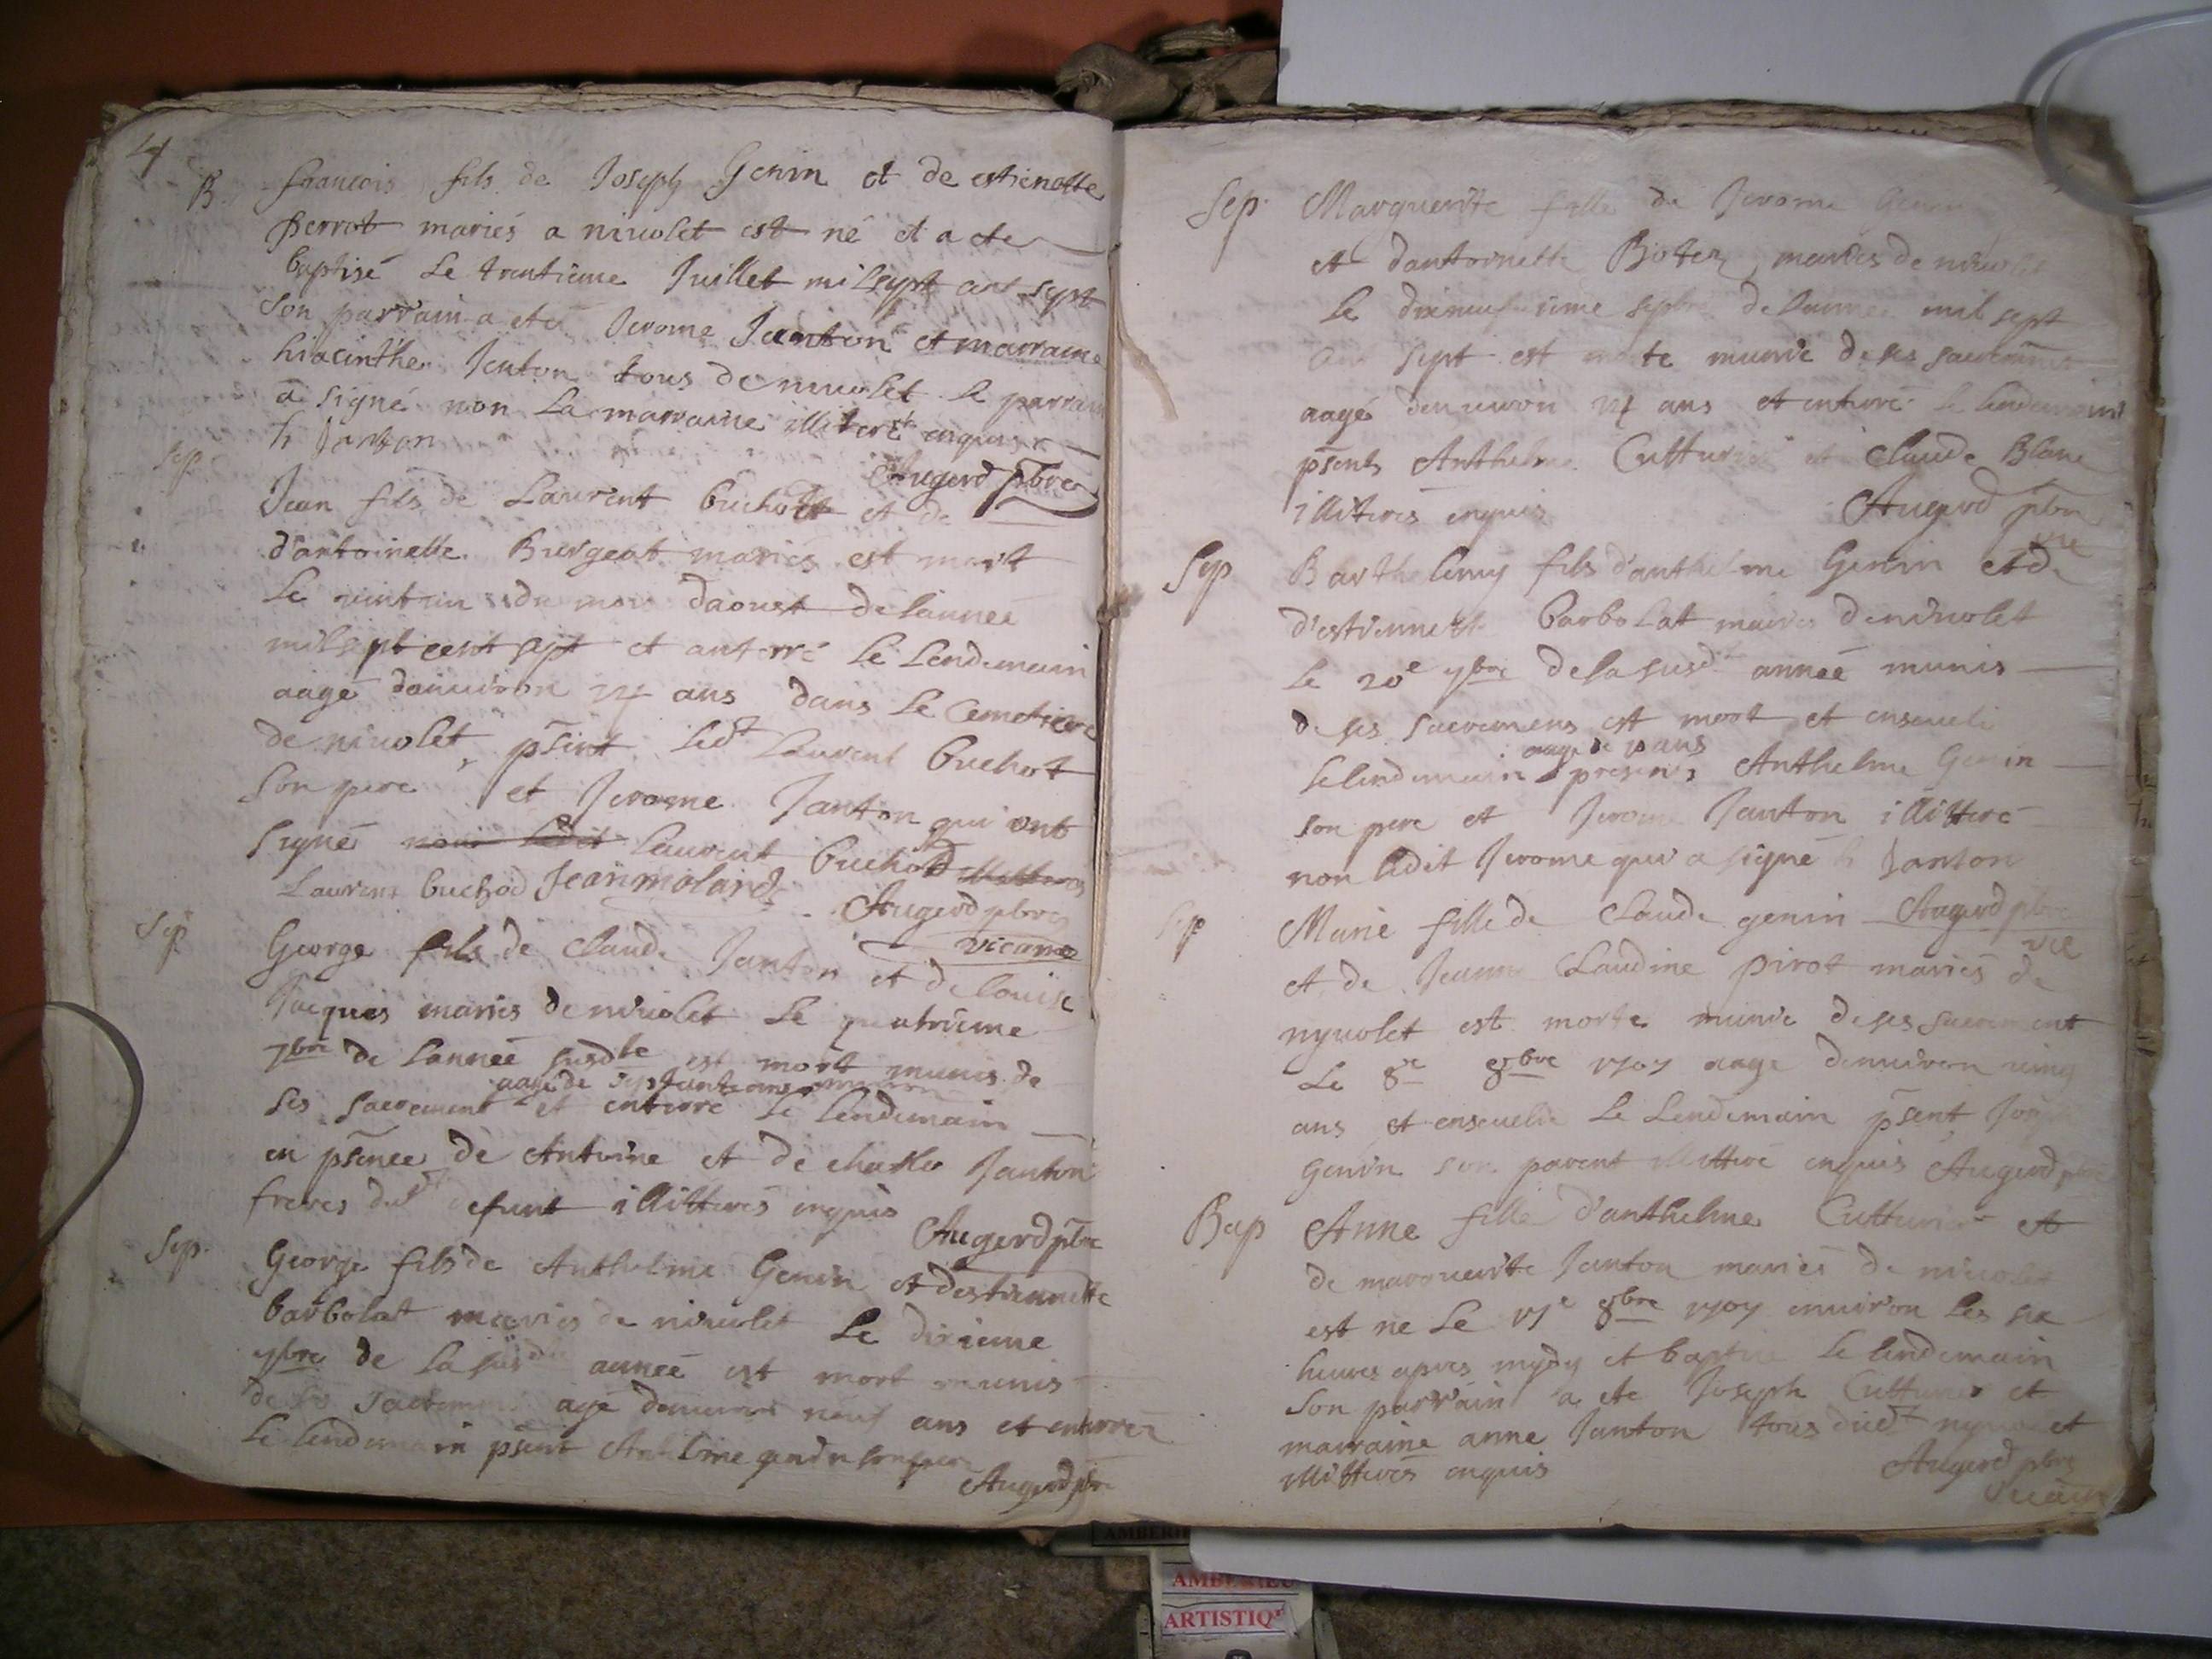 4
B francois fils de Joseph Genin et de estienette
perrot mariés a niuolet est né et a ete
baptisé Le trentieme Juillet mil sept cent sept
Son parrain a eté Jerome Janton et marraine
hiacinthe Janton tous de niuolet le parrain
a signé non La marraine illiteré enquise
h Janton
Augerd pbre
Sep. Jean fils de Laurent buchot et de
d'antoinette Bergeat mariés est mort
Le vint un du mois daoust de lannee
mil sept cent sept et anterré Le Lendemain
aagé danuiron 24 ans dans Le Cemetiere
de niuolet, pšent led^t Laurent buchot
Son pere et Jerome Janton qui ont
signé Laurent buchod
Laurens buchod Jean molard
Augerd pbre
vicaire
Sep George fils de Claude Janton et de louise
Jacques mariés de niuolet Le quatrieme
7bre de Lannee susdte est mort munis de
aagé de septante ans
ses sacrement et enterré Le Lendemain
en pšence de Antoine et de charles Janton
freres dud^t defunt illitterés enquis
Augerd pbre
Sep. George fils de Anthelme Genin et destiennette
barbolat mariés de niuolet Le dixieme
7bre de La susdte année est mort munis
de ses sacremens agé denuiron neuf ans et enterré
Le lendemain pšent Anthelme genin son pere
Augerd pbre
Sep. Marguerite fille de Jerome Genin
et dantoinette mariés de niuolet
le dixneufuieme septbre de Lannee mil sept
cent sept est morte munie de ses sacremens
aagé denuiron 24 ans et enterré le lendemain
pšents Anthelme Cutturier et Claude Blanc
illiteres enquis
Augerd pbre
vic
Sep Barthelemy fils d'anthelme Genin et de
d'estiennette barbolat mariés de niuolet
le 20e 7bre de la susd^te année munis
de ses sacremens est mort et enseueli
aagé de ans
le lendemain presents Anthelme Genin
son pere et Jerome Janton illitteré
non ledit Jerome qui a signé h Janton
Augerd pbre
vic
Sep Marie fille de Claude genin
et de Jeanne Claudine pirot mariés de
nyuolet est morte munie de ses sacrement
Le 8re 8bre 1707 aage denuiron
ans et enseuelie Le Lendemain pšent
genin son parent illitteré enquis Augerd pbre
Bap Anne fille d'anthelme Cutturier et
de marguerite Janton mariés de niuolet
est ne Le 8bre 1707 enuiron les six
heures apres mydy et baptisee le lendemain
Son parrain a ete Joseph Cutturier et
marraine anne Janton tous dud^t et
illitterés enquis
Augerd pbre
vicaire
AMBERIEU
AMBERIEU
ARTISTIQ